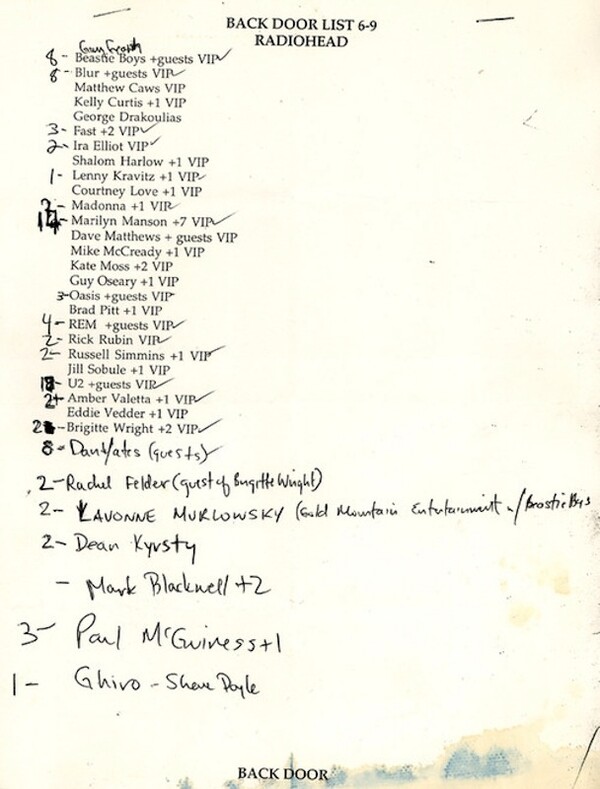 BACK DOOR LIST 6-9
RADIOHEAD
8- Beastie Boys +guests VIP✓
8- Blur +guests VIP✓
Matthew Caws VIP
Kelly Curtis +1 VIP
George Drakoulias
3- Fast +2 VIP✓
2- Ira Elliot VIP✓
Shalom Harlow +1 VIP
1- Lenny Kravitz +1 VIP✓
Courtney Love +1 VIP
Madonna +1 VIP✓
Marilyn Manson +7 VIP✓
Dave Matthews + guests VIP
Mike McCready +1 VIP
Kate Moss +2 VIP
Guy Oseary +1 VIP
3- Oasis +guests VIP✓
Brad Pitt +1 VIP
4- REM +guests VIP✓
2- Rick Rubin VIP✓
2- Russell Simmins +1 VIP✓
Jill Sobule +1 VIP
U2 +guests VIP✓
Amber Valetta +1 VIP✓
Eddie Vedder +1 VIP
Brigitte Wright +2 VIP✓
8- (guests)✓
2- Rachel Felder (guest of Brigitte Wright)
2- LAVONNE MURLOWSKY (Gold Mountain Entertainment w/ Beastie Boys
2- Dean Kyrsty
- Mark Blackwell +2
3- Paul McGuiness +1
1- Ghiro - Shane Doyle
BACK DOOR